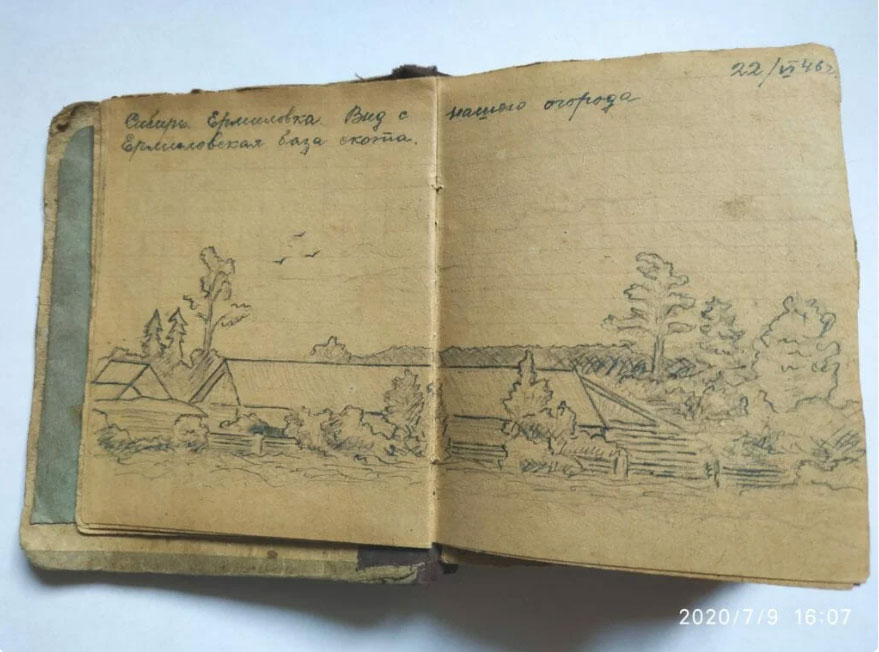 22/VI 46 г.
Сибирь. Ермиловка. Вид с нашего огорода
Ермиловская база скота.
2020/7/9 16:07